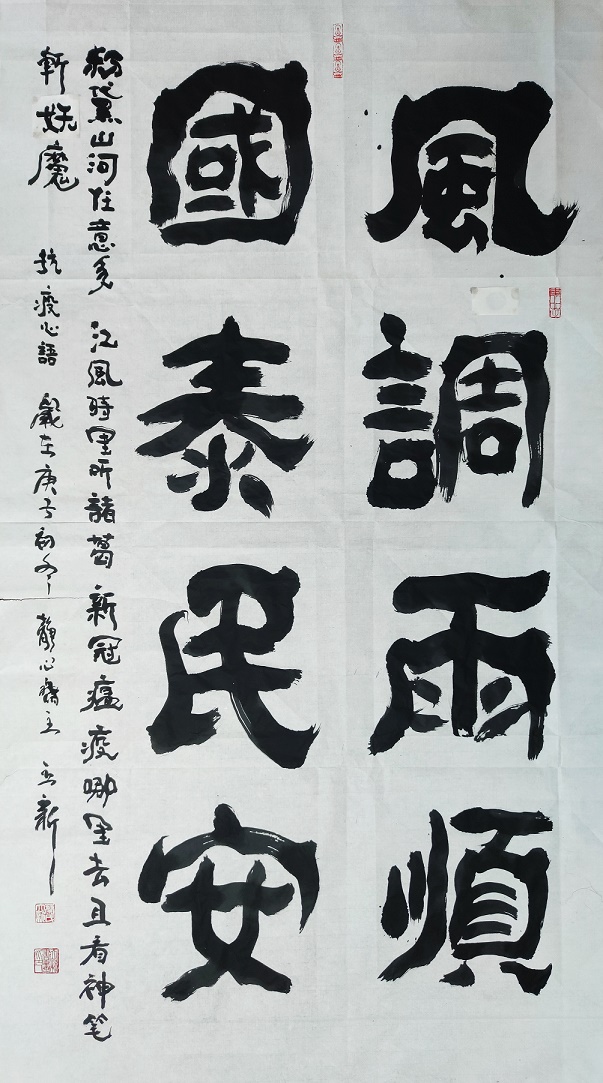 風調雨順
國泰民安
粉黛山河任意多 江風時里听諸葛 新冠瘟疫哪里去 且看神笔
斬妖魔 抗疫心語 歲在庚子初冬 靜心齋主